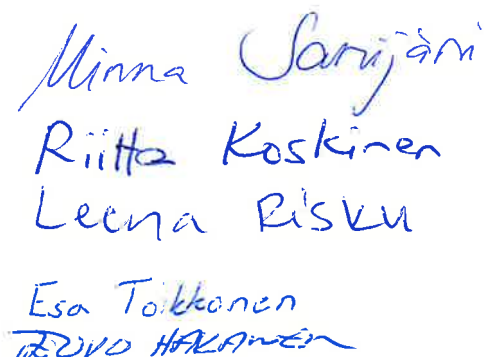 Minna Sarvijärvi
Riitta Koskinen
Leena Risku
Esa Toikkonen
TEUVO HAKANEN